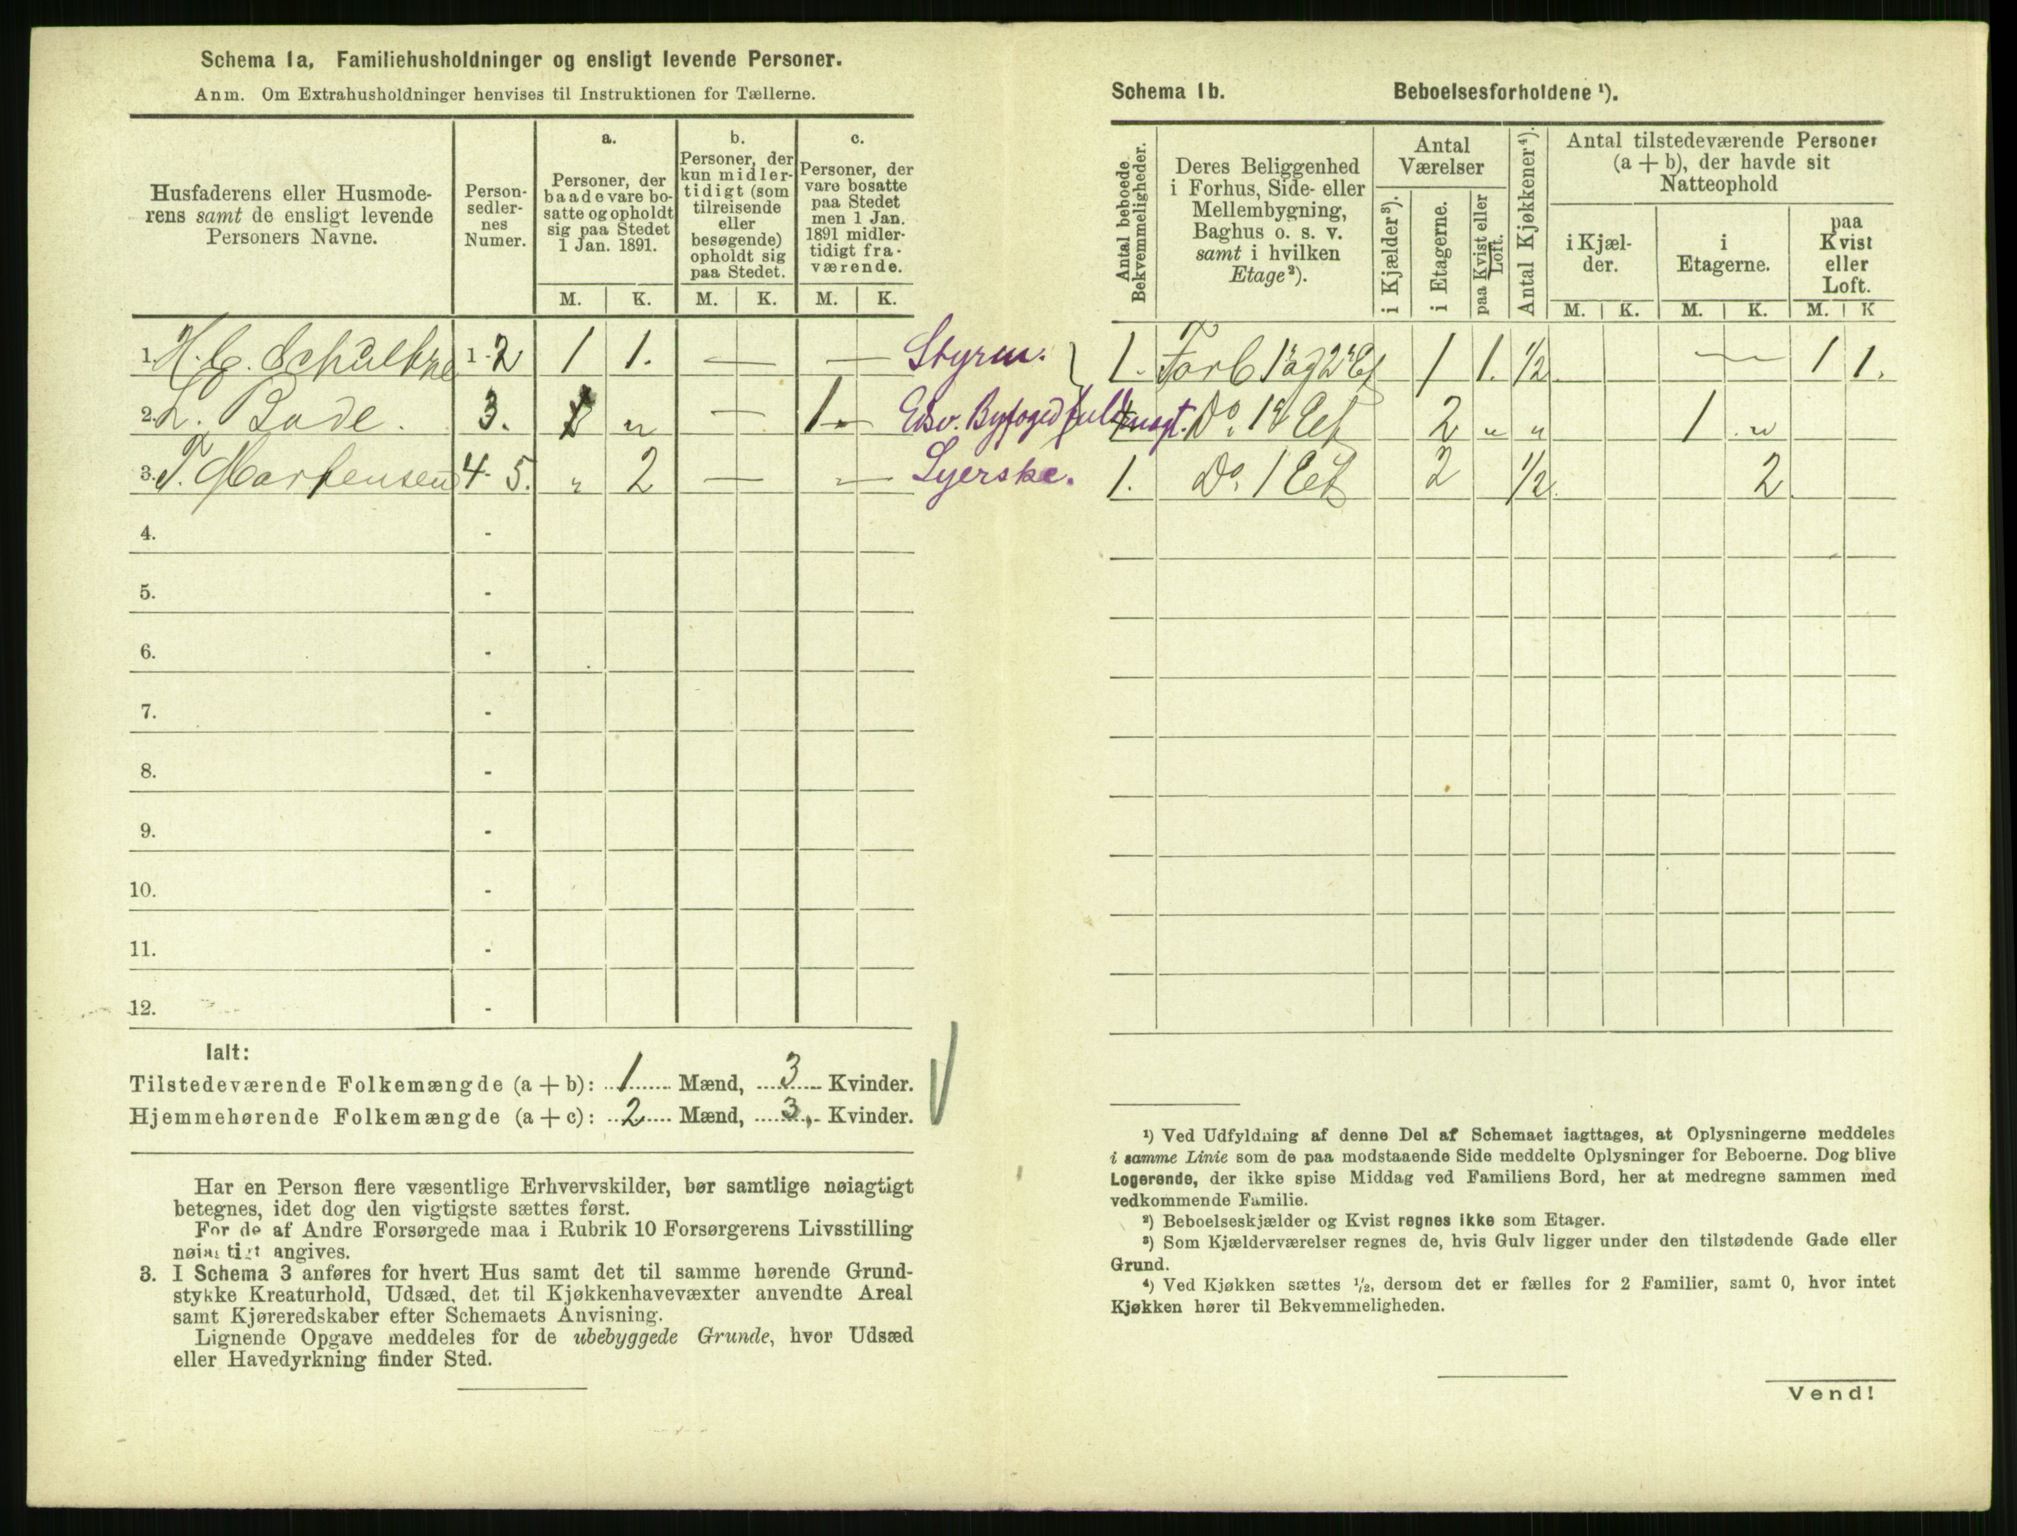 Schema 1a, Familiehusholdninger og ensligt levende Personer.
Anm. Om Extrahusholdninger henvises til Instruktionen for Tællerne.
Husfaderens eller Husmode-
rens samt de ensligt levende
Personers Navne.
Person-
sedler-
nes
Numer.
a.
Personer, der
baade vare bo-
satte og opholdt
sig paa Stedet
1 Jan. 1891.
b.
Personer, der
kun midler-
tidigt (som
tilreisende
eller
besøgende)
opholdt sig
paa Stedet.
c.
Personer, der
vare bosatte
paa Stedet
men 1 Jan.
1891 midler-
tidigt fra-
værende.
M. K. M. K. M. K.
1. H. C. 1-2 1 1. — — Styrm.
2. L. Bode. 3. „ — 1. Edsv. Byfogedfuldmægt.
3. T. Martensen 4-5. „ 2 — „ Syerske.
4. -
5. -
6. -
7. -
8. -
9. -
10. -
11. -
12. -
Ialt:
Tilstedeværende Folkemængde (a + b): 1 Mænd, 3 Kvinder.
Hjemmehørende Folkemængde (a + c): 2 Mænd, 3 Kvinder.
Har en Person flere væsentlige Erhvervskilder, bør samtlige nøiagtigt
betegnes, idet dog den vigtigste sættes først.
For de af Andre Forsørgede maa i Rubrik 10 Forsørgerens Livsstilling
nøiagtigt angives.
3. I Schema 3 anføres for hvert Hus samt det til samme hørende Grund-
stykke Kreaturhold, Udsæd, det til Kjøkkenhavevæxter anvendte Areal
samt Kjøreredskaber efter Schemaets Anvisning.
Lignende Opgave meddeles for de ubebyggede Grunde, hvor Udsæd
eller Havedyrkning finder Sted.
Schema 1b. Beboelsesforholdene ¹).
Antal beboede
Bekvemmeligheder.
Deres Beliggenhed
i Forhus, Side- eller
Mellembygning,
Baghus o. s. v.
samt i hvilken
Etage²).
Antal
Værelser
i Kjælder³).
i Etagerne.
paa Kvist eller
Loft.
Antal Kjøkkener⁴).
Antal tilstedeværende Personer
(a + b), der havde sit
Natteophold
i Kjæl-
der.
i
Etagerne.
paa
Kvist
eller
Loft.
M. K. M. K. M. K
1. Forb 1 og 2 Et 1 1. 1/2 — 1 1.
Do. 1 Et 2 „ „ 1 „
1. Do. 1 Et 2 1/2 2
¹) Ved Udfyldning af denne Del af Schemaet iagttages, at Oplysningerne meddeles
i samme Linie som de paa modstaaende Side meddelte Oplysninger for Beboerne. Dog blive
Logerende, der ikke spise Middag ved Familiens Bord, her at medregne sammen med
vedkommende Familie.
²) Beboelseskjælder og Kvist regnes ikke som Etager.
³) Som Kjælderværelser regnes de, hvis Gulv ligger under den tilstødende Gade eller
Grund.
⁴) Ved Kjøkken sættes ½, dersom det er fælles for 2 Familier, samt 0, hvor intet
Kjøkken hører til Bekvemmeligheden.
Vend!